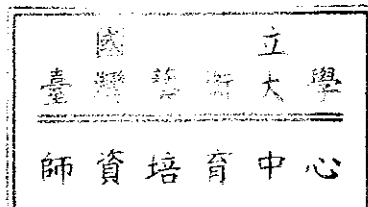 國立
臺灣藝術大學
師資培育中心